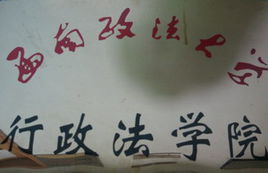 西南政法大学
行政法学院